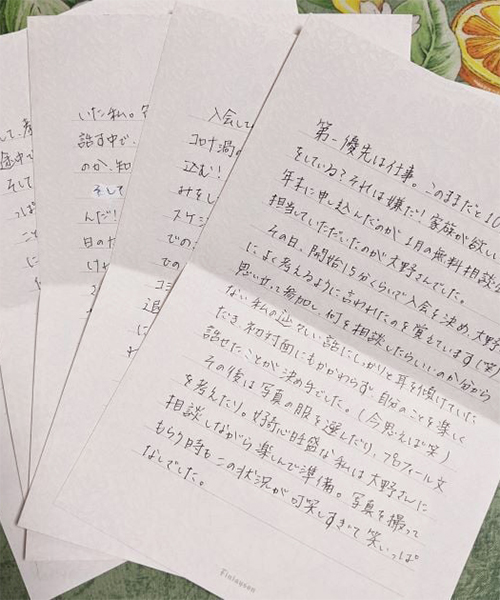 第一優先は仕事。このままだと10
をしている?それは嫌だ!家族が欲しい
年末に申し込んだのが1月の無料相談会
担当していただいたのが大野さんでした。
その日、開始15分くらいで入会を決め、大野
によく考えるように言われたのを覚えています(笑)
思い立って参加し、何を相談したらいいのか分から
ない私の辿々しい話にしっかりと耳を傾けていた
だき、初対面にもかかわらず、自分のことを楽しく
話せたことが決め手でした。(今思えば笑)
その後は写真の服を選んだり、プロフィール文
を考えたり。好奇心旺盛な私は大野さんに
相談しながら楽しんで準備。写真を撮って
もらう時もこの状況が可笑しすぎて笑いっぱ
なしでした。
Finlayson
入会して
コロナ禍の
込む!
みをし
スケジ
での
での
コミ
退
に
いた私。
話す中で、
のか、知
そして
んだ!
日のた
けれ
して、
途中で
そして
っぱ
こと
に